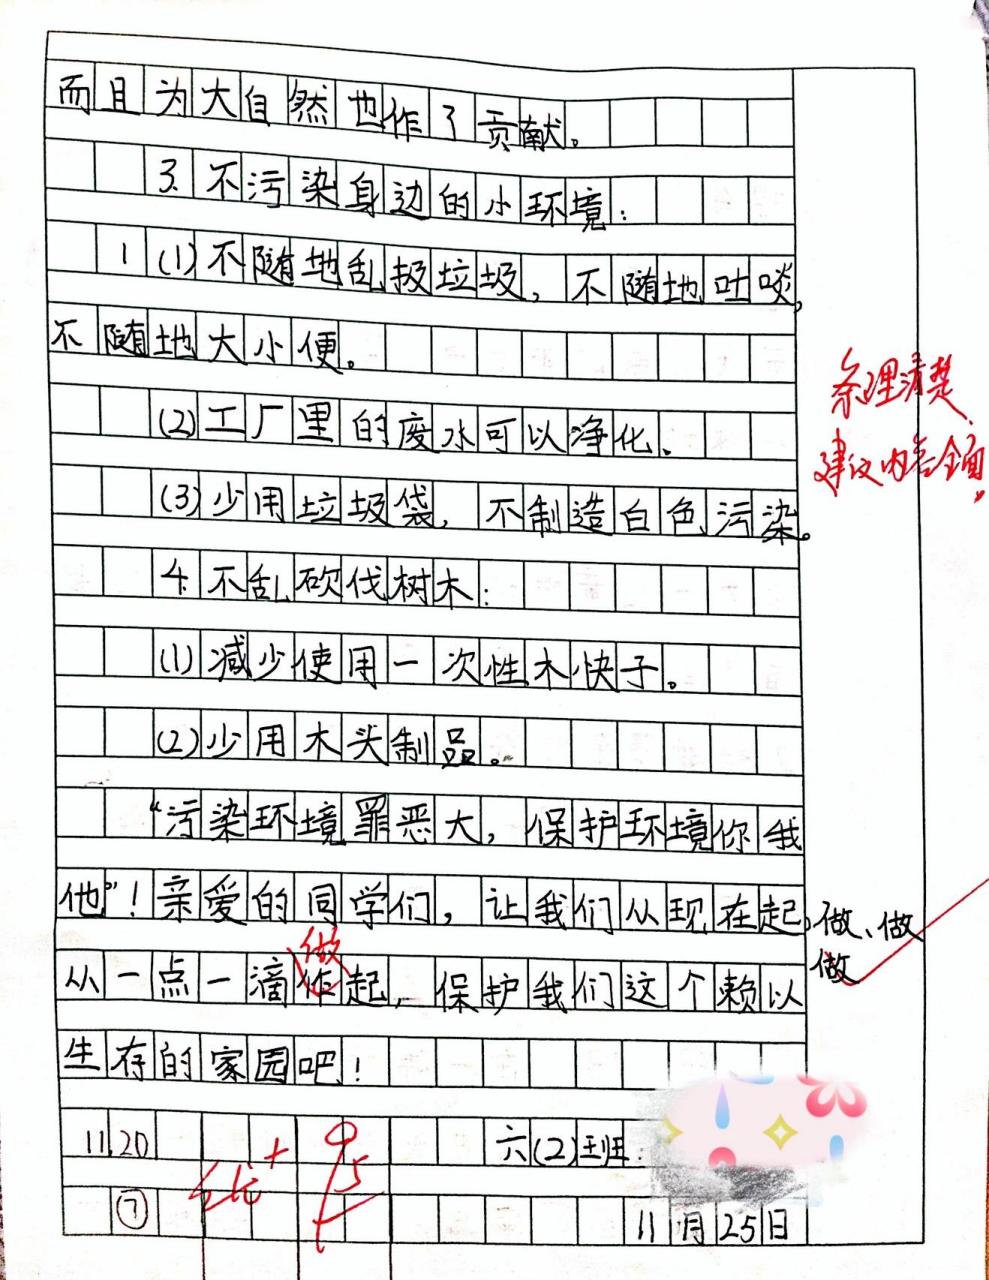 而且为大自然也作了贡献。
3.不污染身边的小环境：
1(1)不随地乱扱垃圾，不随地吐啖，
不随地大小便。
(2)工厂里的废水可以净化、
(3)少用垃圾袋，不制造白色污染。
4.不乱砍伐树木：
(1)减少使用一次性木快子。
(2)少用木头制品。
“污染环境罪恶大，保护环境你我
他”！亲爱的同学们，让我们从现在起，
做
从一点一滴作起，保护我们这个赖以
生存的家园吧！
条理清楚、
建议内容全面，
做、做
做
11.20
六(2)班：
优+
95
7
11月25日